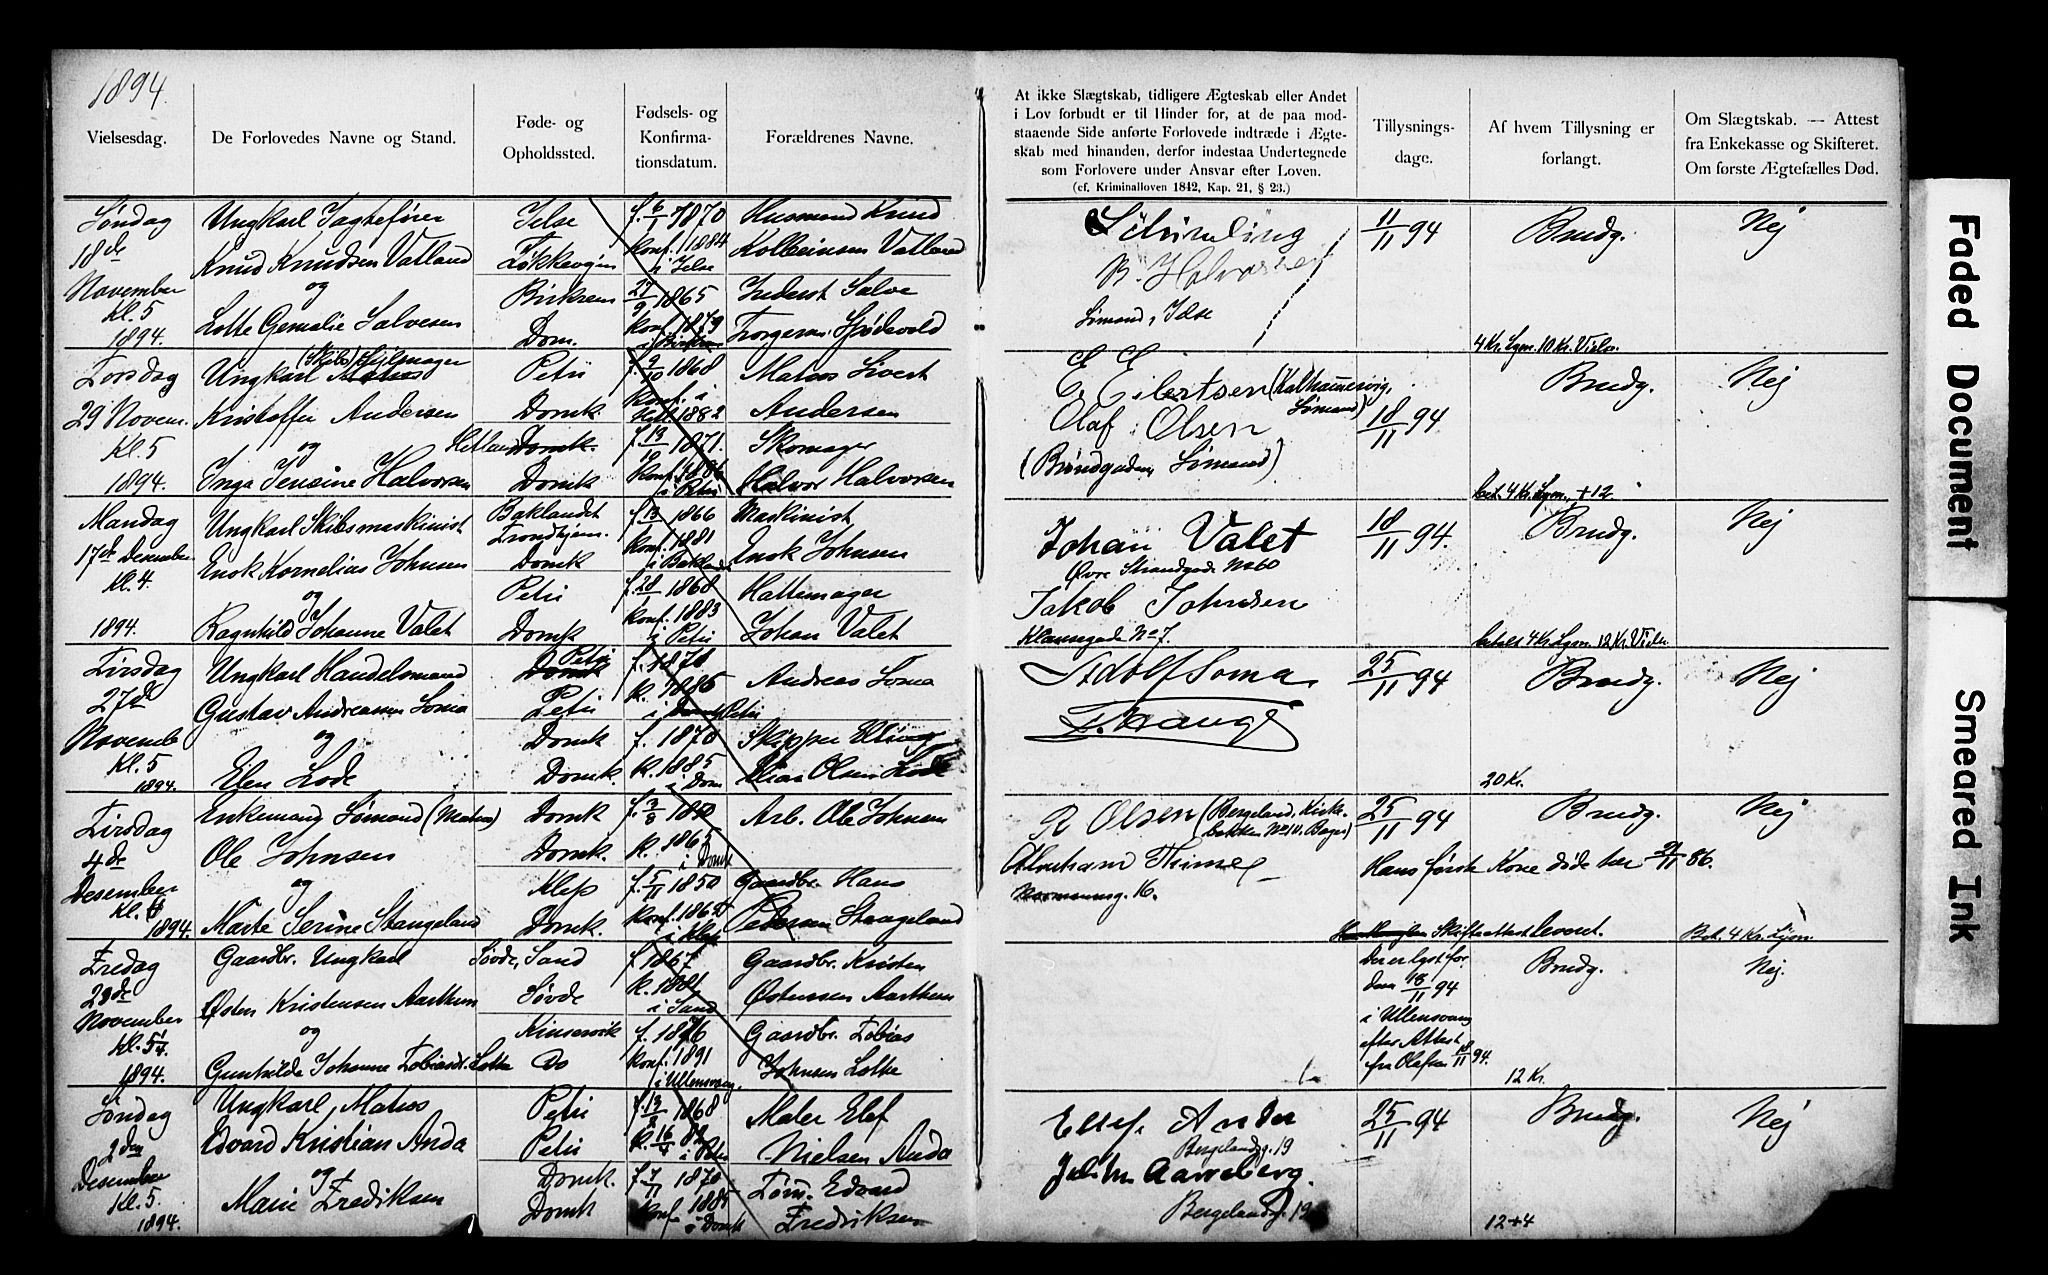 1894.
Vielsesdag.
De Forlovedes Navne og Stand.
Føde- og
Opholdssted.
Fødsels- og
Konfirma-
tionsdatum.
Forældrenes Navne.
At ikke Slægtskab, tidligere Ægteskab eller Andet
i Lov forbudt er til Hinder for, at de paa mod-
staaende Side anførte Forlovede indtræde i Ægte-
skab med hinanden, derfor indestaa Undertegnede
som Forlovere under Ansvar efter Loven.
(cf. Kriminalloven 1842, Kap. 21, § 23.)
Tillysnings-
dage.
Af hvem Tillysning er
forlangt.
Om Slægtskab. — Attest
fra Enkekasse og Skifteret.
Om første Ægtefælles Død.
Søndag
18de
November
Kl. 5
1894.
Ungkarl
Knud Knudsen Vatland
og
Lotte Salvesen
Jelse
Birkrem
Dom.
f. 6/1 1870
konf. 1884
i Jelse
f. 27/9 1865
konf. 1879
Husmand Knud
Kolbeinsen Vatland
Inderst Salve
Torgersen
Sømand, Jelse
11/11 94
Brudg.
4 Kr. Lysn. 10 Kr. Vielse.
Nej
Torsdag
29 Novem.
Kl. 5
1894.
(Skibs) Sejlmager
Ungkarl
Kristoffer Andersen
og
Inga Jensine Halvorsen
Petri
Domk
Hetland Domk.
Domk
f. 9/10 1868
konf. i
Petri 1882
f. 19/10 1871.
konf. 1886
i Petri
Matros Sivert
Andersen
Skomager
Halvor Halvorsen
E. Eilertsen (Kalhammervig,
Sømand)
Olaf Olsen
(Brøndgaden, Sømand)
18/11 94
Brudg.
bet. 4 Kr. Lysn. +12
Nej
Mandag
17de Desember
Kl. 4.
1894.
Ungkarl Skibsmaskinist
Enok Kornelias Johnsen
og
Ragnhild Johanne Valet
Baklandet
Trondhjem.
Domk
Petri
Domk
f. 13/ 1866
konf. 1881
i Baklandet
f. 28/1 1868
konf. 1883
i Petri
Maskinist
Enok Johnsen
Hattemager
Johan Valet
Johan Valet
Øvre Strandgade No 60
Jakob Johnsen
Klausegade No 7.
18/11 94.
Brudg.
betalt 4 Kr. Lysn. 12 Kr. Vielse
Nej
Tirsdag
27de
Novemb
Kl. 5
1894.
Ungkarl Handelsmand
Gustav Andreassen Soma
og
Elen Lode
Petri
Domk
Petri
Domk
Domk
f. 1871
k. 1886
i Domk Petri
f. 1870
k. 1885
i Dom
Andreas Soma
Skipper Elling
Elias Olsen Lode
Adolf Soma
25/11 94
Brudg.
20 Kr.
Nej
Tirsdag
4de
Desember
Kl. 4
1894.
Enkemand Sømand (Matros)
Ole Johnsen
og
Marte Serine Stangeland
Domk
Domk.
Klep
Domk.
f. 3/8 1850
k. 1865
i Domk
f. 5/11 1850
konf. 1865
i Klep
Arb. Ole Johnsen
Gaardbr. Hans
Pedersen Stangeland
R Olsen (Bergeland, Kirke-
bakken No 10. Bager)
25/11 94
Brudg.
Nej
Hans første Kone døde her 21/11 86.
Skifteattest leveret.
Bet. 4 Kr. Lysn.
Fredag
23de
November
Kl. 5¼
1894.
Gaardbr. Ungkarl
Østen Kristensen Aarthun
og
Gunhilde Johanne Tobiasdt. Lotte
Søvde, Sand
Søvde
Kinservik
Do
f. 1867
k. 1881
i Sand
f. 1876
konf. 1891
i Ullensvang.
Gaardbr. Kristen
Østensen Aarthun
Gaardbr. Tobias
Johnsen Lotte
Der er lyst for
dem 18/11 94
i Ullensvang
efter Attest
fra Olafsen 18/11 94.
Brudg.
12 Kr.
Nej.
Søndag
2den
Desember
Kl. 5.
1894.
Ungkarl, Matros
Edvard Kristian Anda
og
Marie Fredriksen
Petri
Petri
Domk.
Domk
f. 13/2 1868
k. 16/4 82
i Petri
f. 7/11 1870
konf. 1885
i Domk
Maler Elef
Nielsen Anda
Tøm. Edvard
Fredriksen
Bergelandg. 19
Aareberg.
Bergelandg. 19
25/11 94
Brudg.
12+4
Nej
Faded Document
Smeared Ink